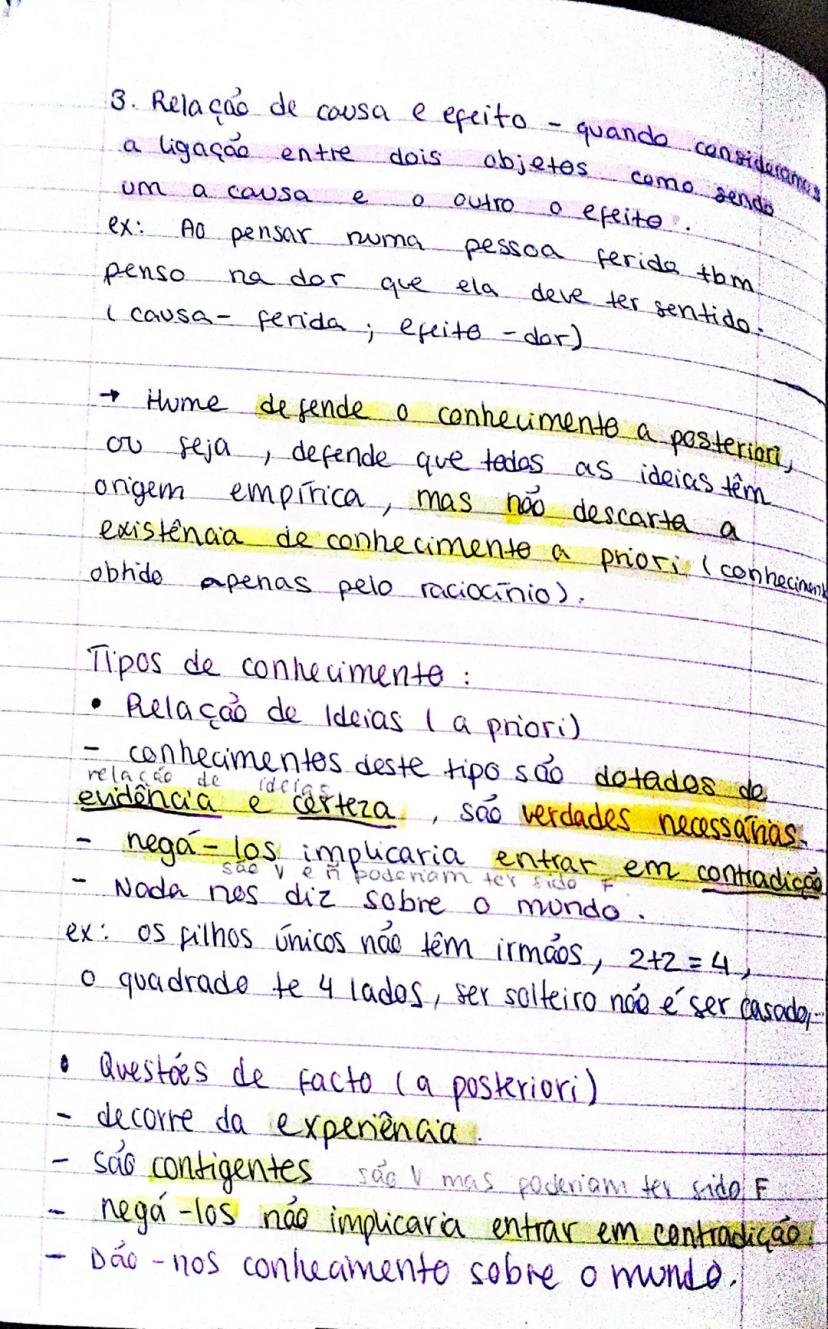 3. Relação de causa e efeito - quando consideramos
a ligação entre dois objetos como sendo
um a causa e o outro o efeito.
ex: Ao pensar numa pessoa ferida tbm
penso na dor que ela deve ter sentido.
(causa - ferida ; efeito - dor)
→ Hume defende o conhecimento a posteriori,
ou seja, defende que todas as ideias têm
origem empírica, mas não descarta a
existência de conhecimento a priori (conhecimento
obtido apenas pelo raciocínio).
Tipos de conhecimento:
• Relação de Ideias (a priori)
- conhecimentos deste tipo são dotados de
relação de ideias
evidência e certeza, são verdades necessárias.
- negá-los implicaria entrar em contradição
são V e ñ poderiam ter sido F
- Nada nos diz sobre o mundo.
ex: os filhos únicos não têm irmãos, 2+2=4,
o quadrado te 4 lados, ser solteiro não é ser casado,...
• Questões de facto (a posteriori)
- decorre da experiência.
- são contigentes são V mas poderiam ter sido F
- negá-los não implicaria entrar em contradição.
- Dão-nos conhecimento sobre o mundo.